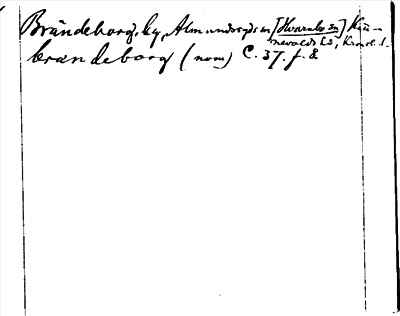 Brändeborg, by, Almundsryds sn [Hwarabo sn] Kin-
nevalds hd, Kronob. l.
brændeborg (nom) C. 37. f. 8